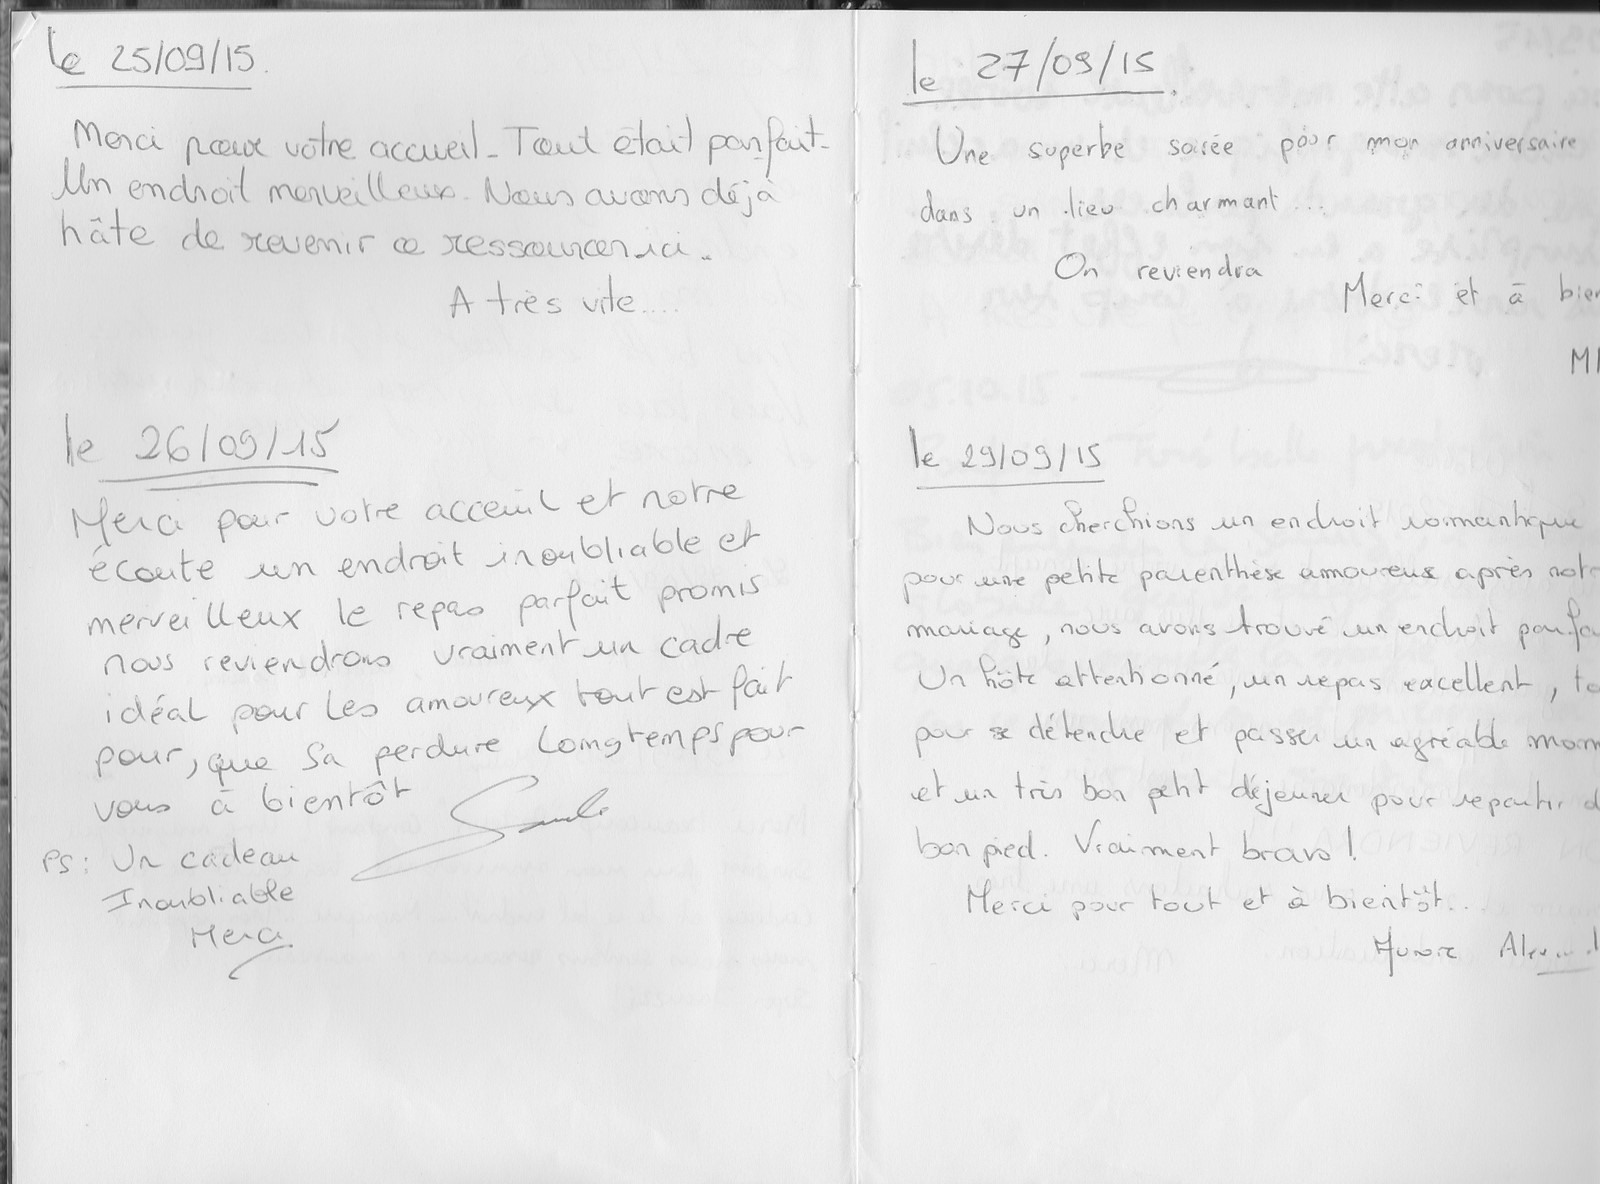 le 25/09/15.
Merci pour votre accueil. Tout était parfait.
Un endroit merveilleux. Nous avons déjà
hâte de revenir se ressourcer ici.
A très vite....
le 26/09/15
Merci pour votre acceuil et notre
écoute un endroit inoubliable et
merveilleux le repas parfait promis
nous reviendrons vraiment un cadre
idéal pour les amoureux tout est fait
pour, que sa perdure longtemps pour
vous à bientôt
PS: Un cadeau
Inoubliable
Merci
le 27/09/15.
Une superbe soirée pour mon anniversaire
dans un lieu charmant...
On reviendra
Merci et à bien
le 29/09/15
Nous cherchions un endroit romantique
pour une petite parenthèse amoureuse après notr
mariage, nous avons trouvé un endroit parfa
Un hôte attentionné, un repas excellent, to
pour se détendre et passer un agréable mom
et un très bon petit déjeuner pour repartir d
bon pied. Vraiment bravo !
Merci pour tout et à bientôt...
Aurore